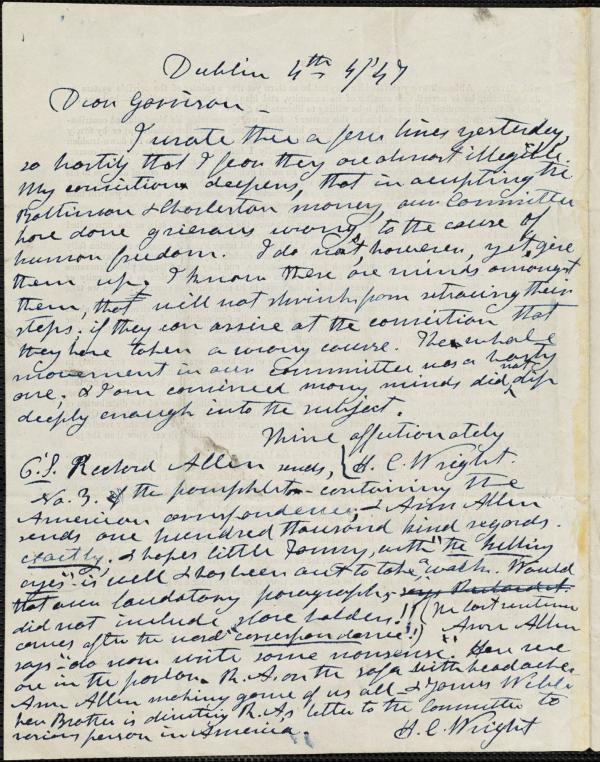 Dublin 4th 4/47
Dear Garrison –
I wrote thee a few lines yesterday,
so hastily that I fear they are almost illegible.
My conviction deepens, that in accepting the
Baltimore & Charleston money, our Committee
have done grievous wrong to the cause of
human freedom. I do not, however, yet, give
them up. I know there are minds amongst
them, that will not shrink from retracing their
steps, if they can arrive at the conviction that
they have taken a wrong course. The whole
movement in our Committee was a hasty
one, & I am convinced many minds did not dip
deeply enough into the subject.
Thine affectionately
H. C. Wright.
P.S. Richard Allen sends,
No. 3. of the pamphlet containing the
American correspondence; & Ann Allen
sends one hundred thousand kind regards.
exactly. & hopes little Fanny, with "the killing
eyes" is well & has been out to take a walk. Would
that our laudatory paragraph, says Richard A.
did not include slave holders!! (The last sentence
comes after the word "correspondence"!) Ann Allen
says "do now write some nonsense." Here we
are in the parlor. R. A. on the sofa with headache.
Ann Allen making game of us all & James Webb
her Brother is directing R. A.s letter to the Committee to
various person in America.
H. C. Wright